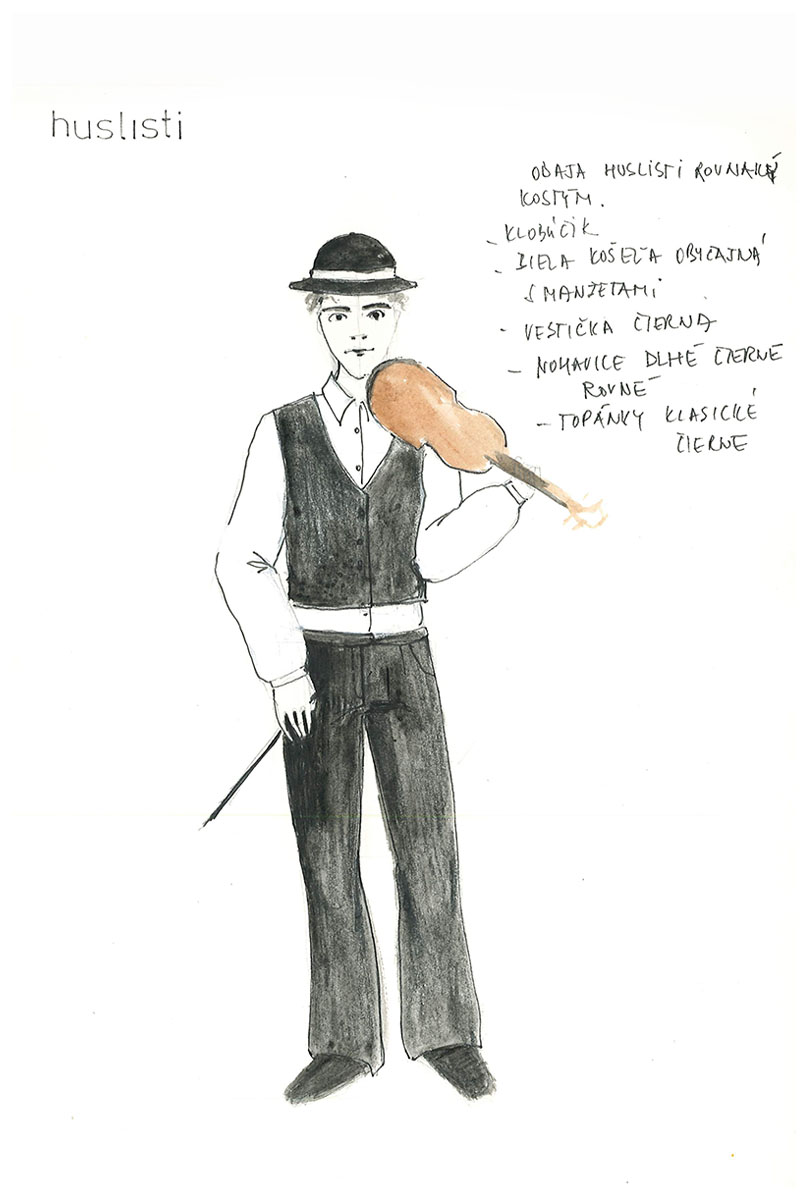 huslisti
OBAJA HUSLISTI ROVNAKÝ
KOSTÝM.
- KLOBÚČIK
- BIELA KOŠEĽA OBYČAJNÁ
S MANŽETAMI
- VESTIČKA ČIERNA
- NOHAVICE DLHÉ ČIERNE
ROVNÉ
- TOPÁNKY KLASICKÉ
ČIERNE